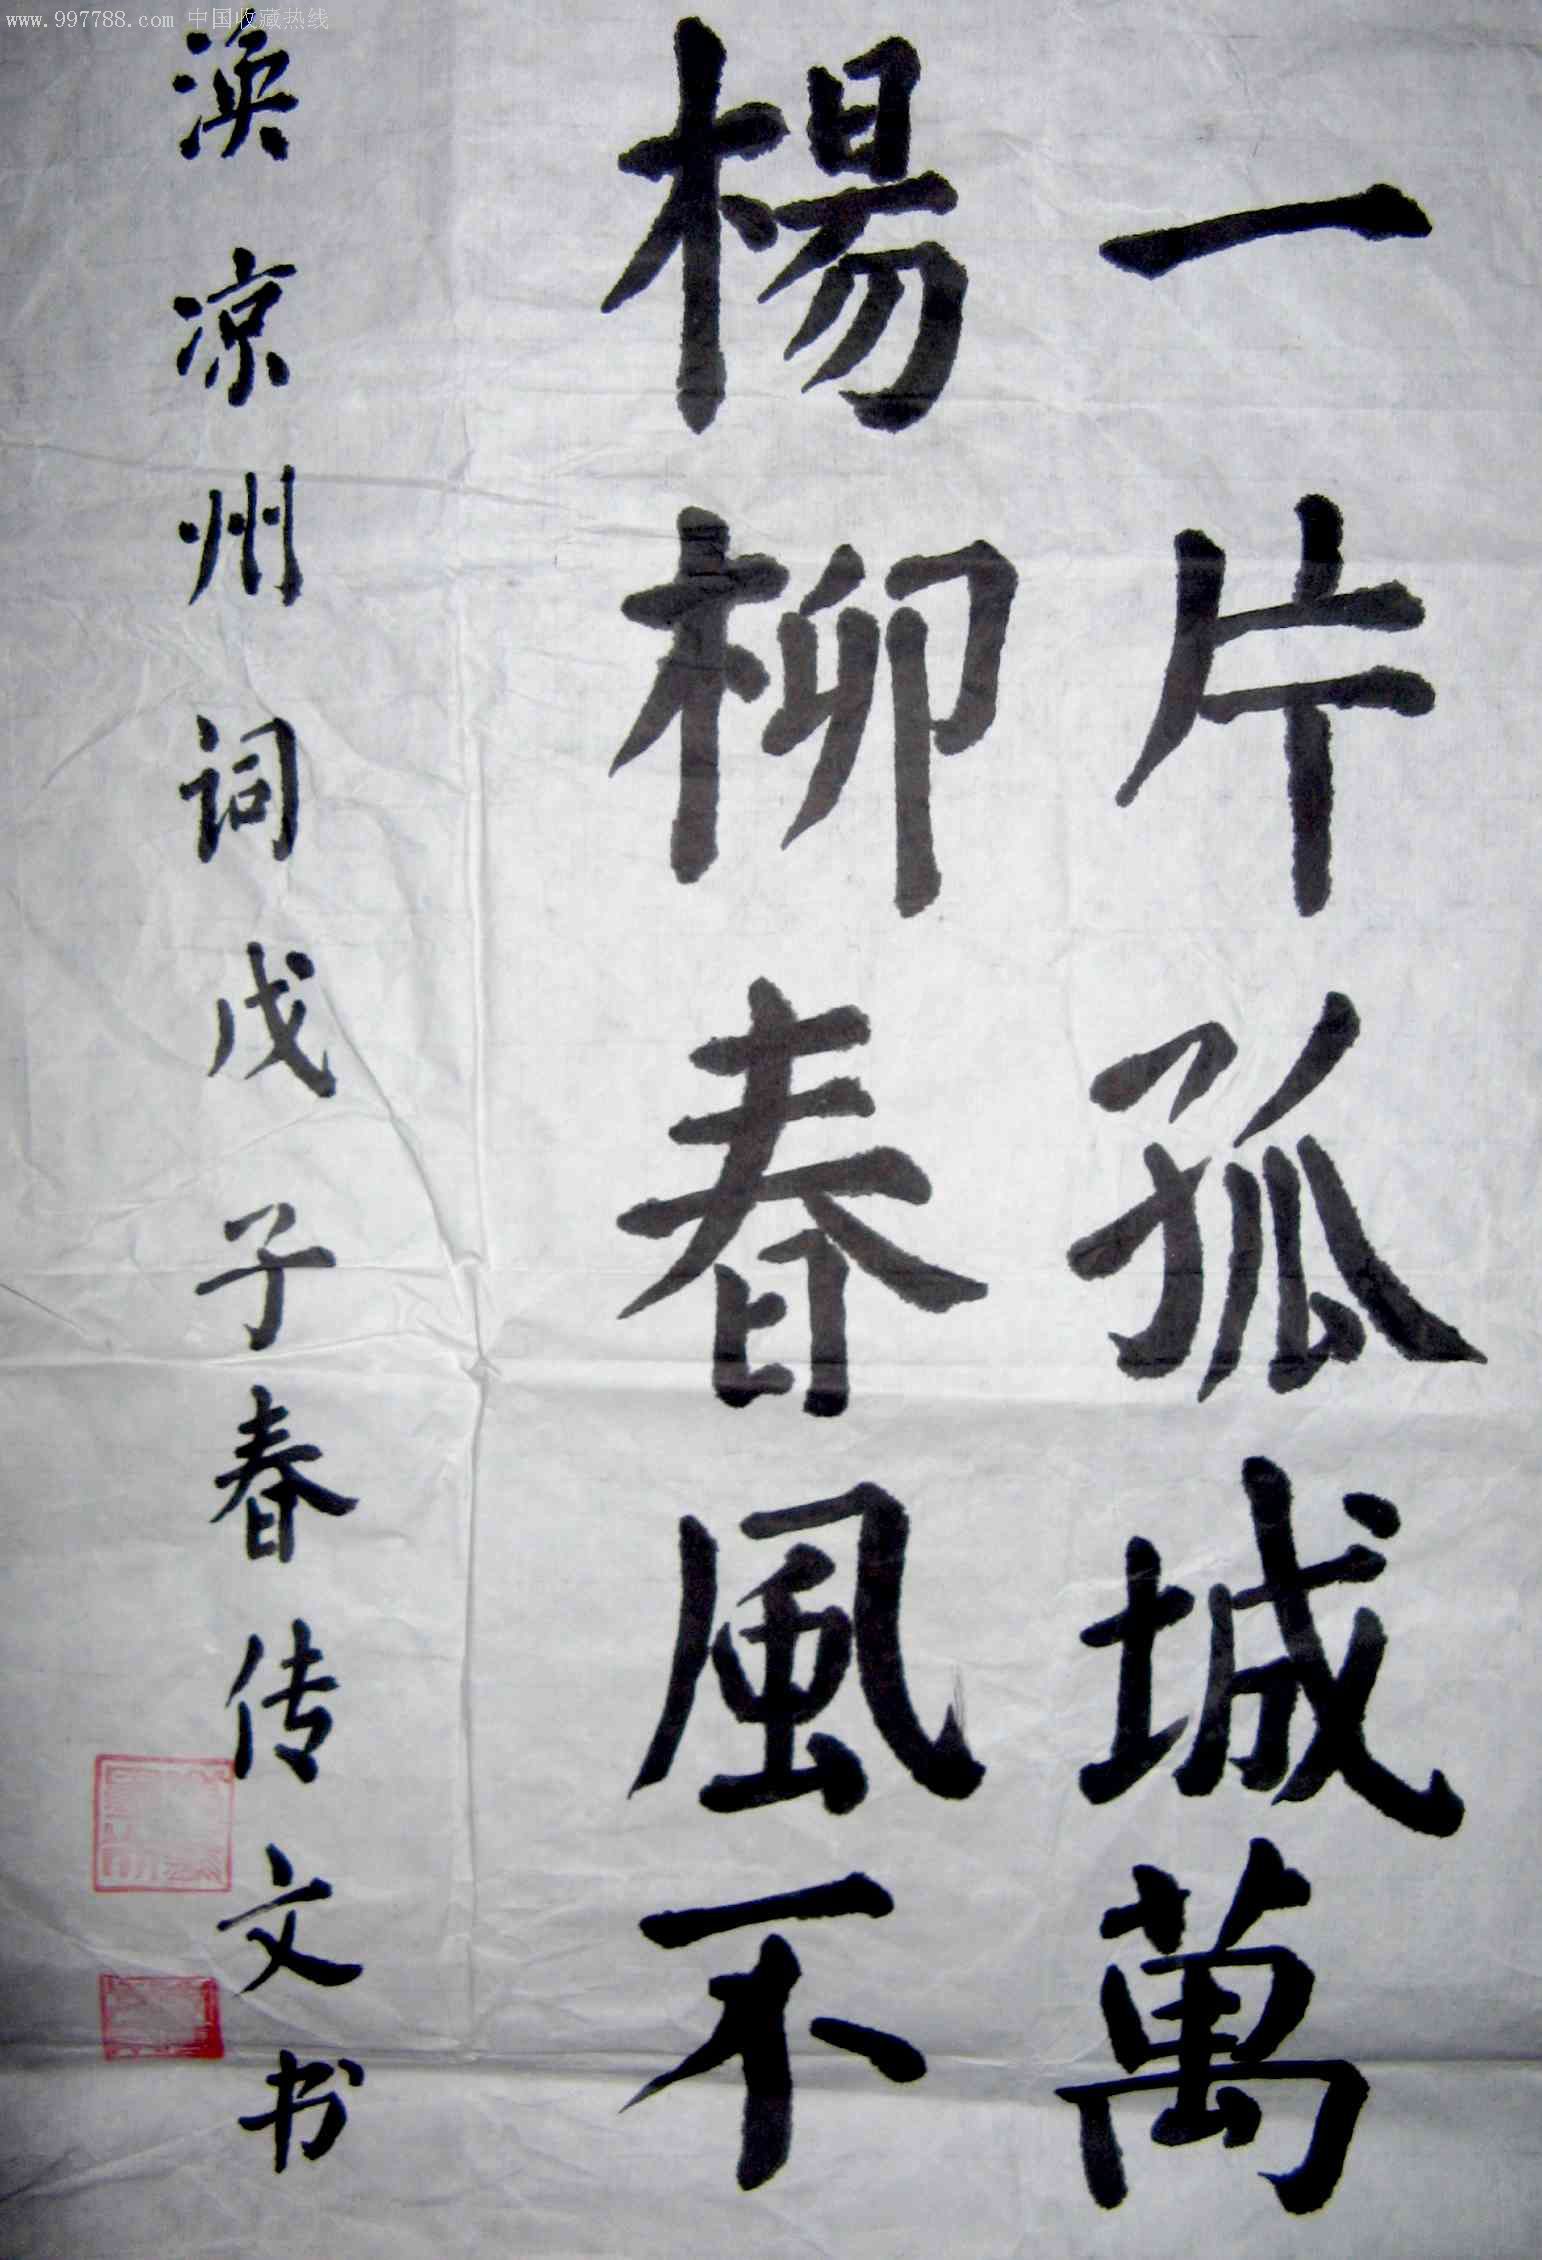 www.997788.com 中国收藏热线
一片孤城萬
楊柳春風不
渙凉州词戊子春传文书